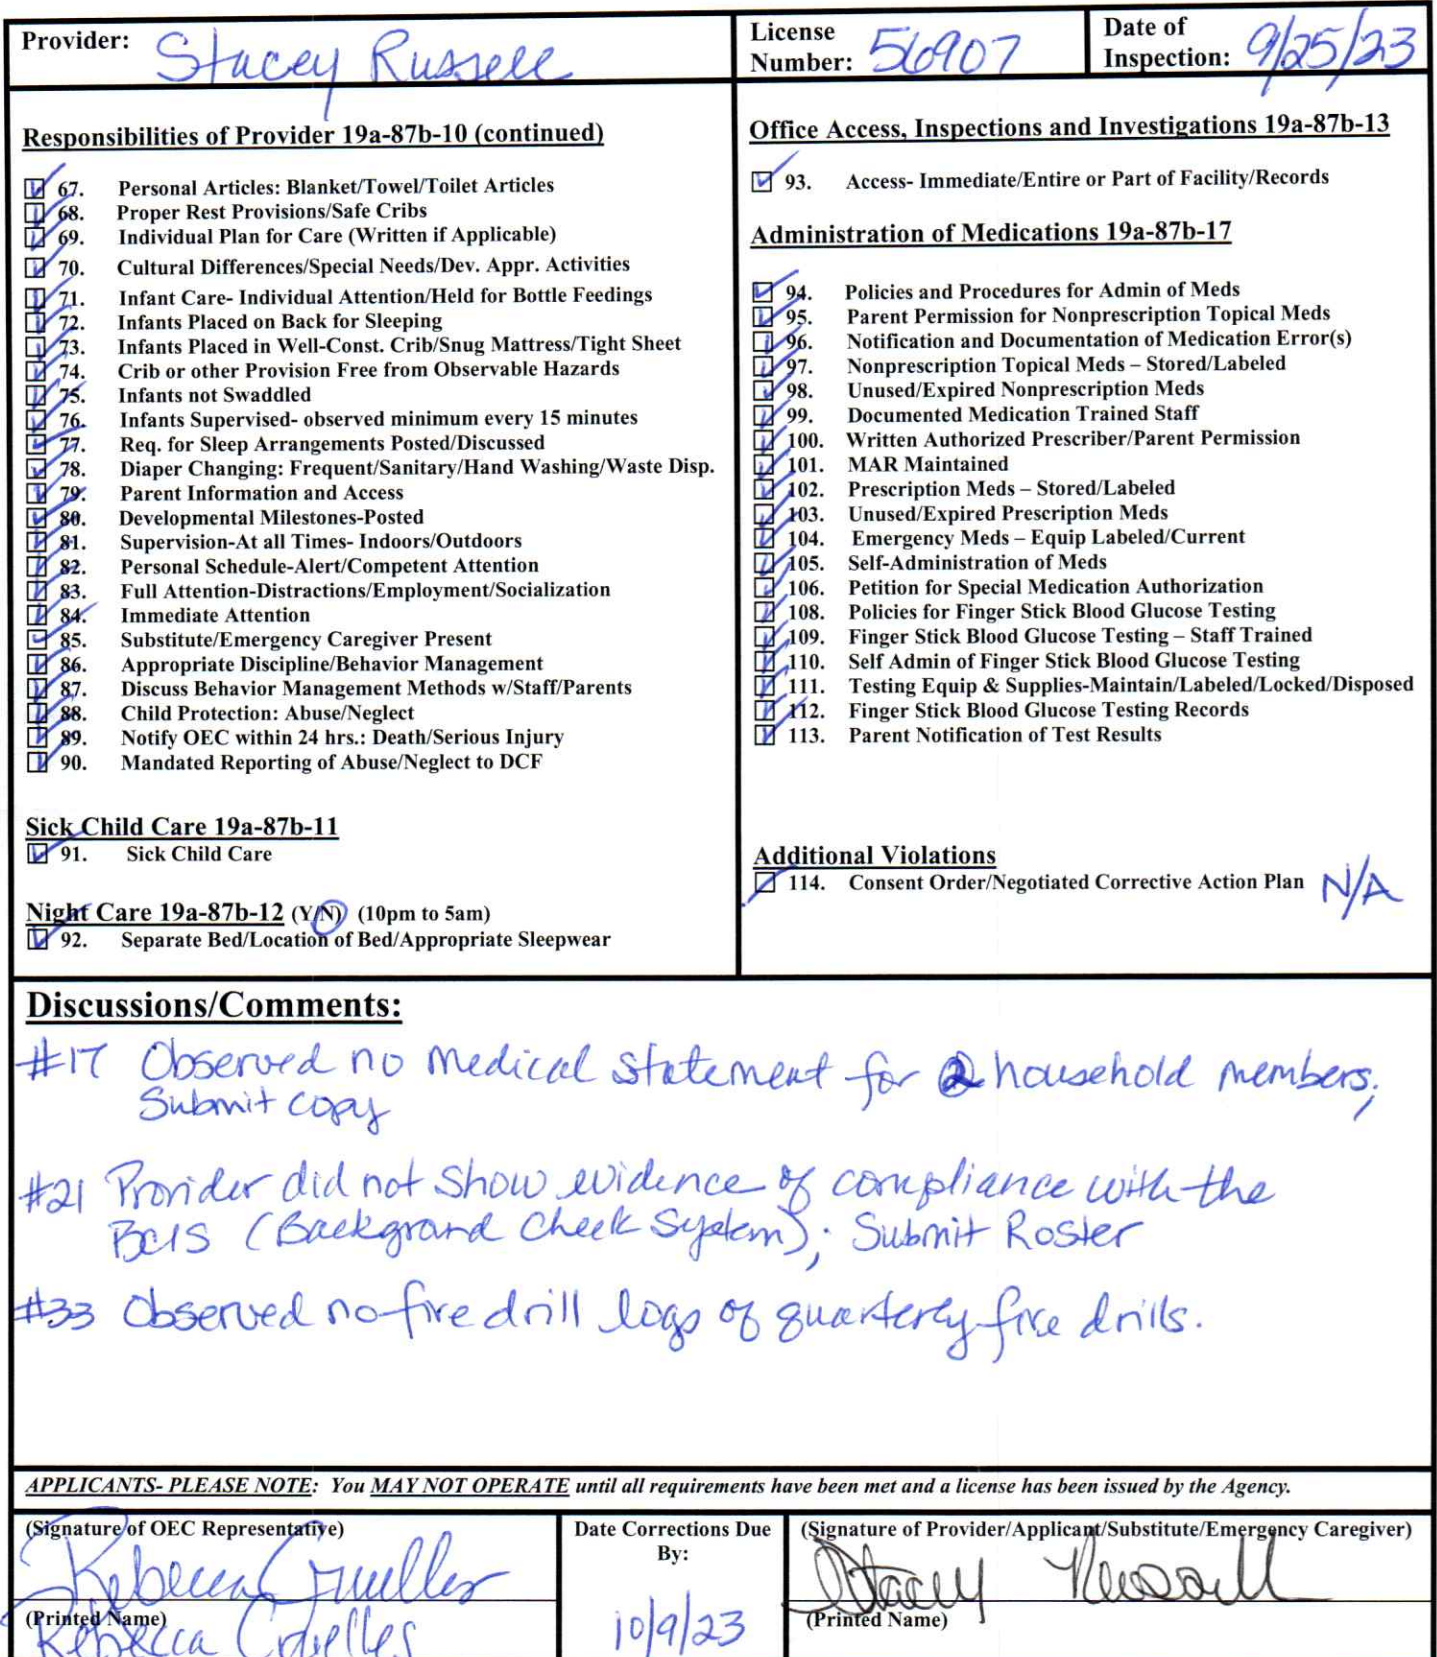 Provider: Stacey Russell
License Number: 56907
Date of Inspection: 9/25/23
Responsibilities of Provider 19a-87b-10 (continued)
67. Personal Articles: Blanket/Towel/Toilet Articles
68. Proper Rest Provisions/Safe Cribs
69. Individual Plan for Care (Written if Applicable)
70. Cultural Differences/Special Needs/Dev. Appr. Activities
71. Infant Care- Individual Attention/Held for Bottle Feedings
72. Infants Placed on Back for Sleeping
73. Infants Placed in Well-Const. Crib/Snug Mattress/Tight Sheet
74. Crib or other Provision Free from Observable Hazards
75. Infants not Swaddled
76. Infants Supervised- observed minimum every 15 minutes
77. Req. for Sleep Arrangements Posted/Discussed
78. Diaper Changing: Frequent/Sanitary/Hand Washing/Waste Disp.
79. Parent Information and Access
80. Developmental Milestones-Posted
81. Supervision-At all Times- Indoors/Outdoors
82. Personal Schedule-Alert/Competent Attention
83. Full Attention-Distractions/Employment/Socialization
84. Immediate Attention
85. Substitute/Emergency Caregiver Present
86. Appropriate Discipline/Behavior Management
87. Discuss Behavior Management Methods w/Staff/Parents
88. Child Protection: Abuse/Neglect
89. Notify OEC within 24 hrs.: Death/Serious Injury
90. Mandated Reporting of Abuse/Neglect to DCF
Sick Child Care 19a-87b-11
91. Sick Child Care
Night Care 19a-87b-12 (Y/N) (10pm to 5am)
92. Separate Bed/Location of Bed/Appropriate Sleepwear
Office Access, Inspections and Investigations 19a-87b-13
93. Access- Immediate/Entire or Part of Facility/Records
Administration of Medications 19a-87b-17
94. Policies and Procedures for Admin of Meds
95. Parent Permission for Nonprescription Topical Meds
96. Notification and Documentation of Medication Error(s)
97. Nonprescription Topical Meds – Stored/Labeled
98. Unused/Expired Nonprescription Meds
99. Documented Medication Trained Staff
100. Written Authorized Prescriber/Parent Permission
101. MAR Maintained
102. Prescription Meds – Stored/Labeled
103. Unused/Expired Prescription Meds
104. Emergency Meds – Equip Labeled/Current
105. Self-Administration of Meds
106. Petition for Special Medication Authorization
108. Policies for Finger Stick Blood Glucose Testing
109. Finger Stick Blood Glucose Testing – Staff Trained
110. Self Admin of Finger Stick Blood Glucose Testing
111. Testing Equip & Supplies-Maintain/Labeled/Locked/Disposed
112. Finger Stick Blood Glucose Testing Records
113. Parent Notification of Test Results
Additional Violations
114. Consent Order/Negotiated Corrective Action Plan N/A
Discussions/Comments:
#17 Observed no medical statement for 2 household members;
Submit copy
#21 Provider did not show evidence of compliance with the
BCIS (Background Check System); Submit Roster
#33 Observed no fire drill logs of quarterly fire drills.
APPLICANTS- PLEASE NOTE: You MAY NOT OPERATE until all requirements have been met and a license has been issued by the Agency.
(Signature of OEC Representative)
Rebecca Cruelles
(Printed Name)
Rebecca Cruelles
Date Corrections Due
By:
10/9/23
(Signature of Provider/Applicant/Substitute/Emergency Caregiver)
Stacey Russell
(Printed Name)